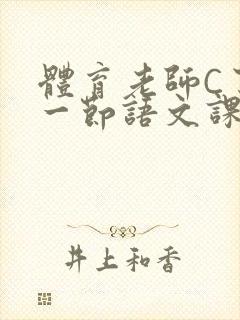 體育老師C
一節語文課
井上和香